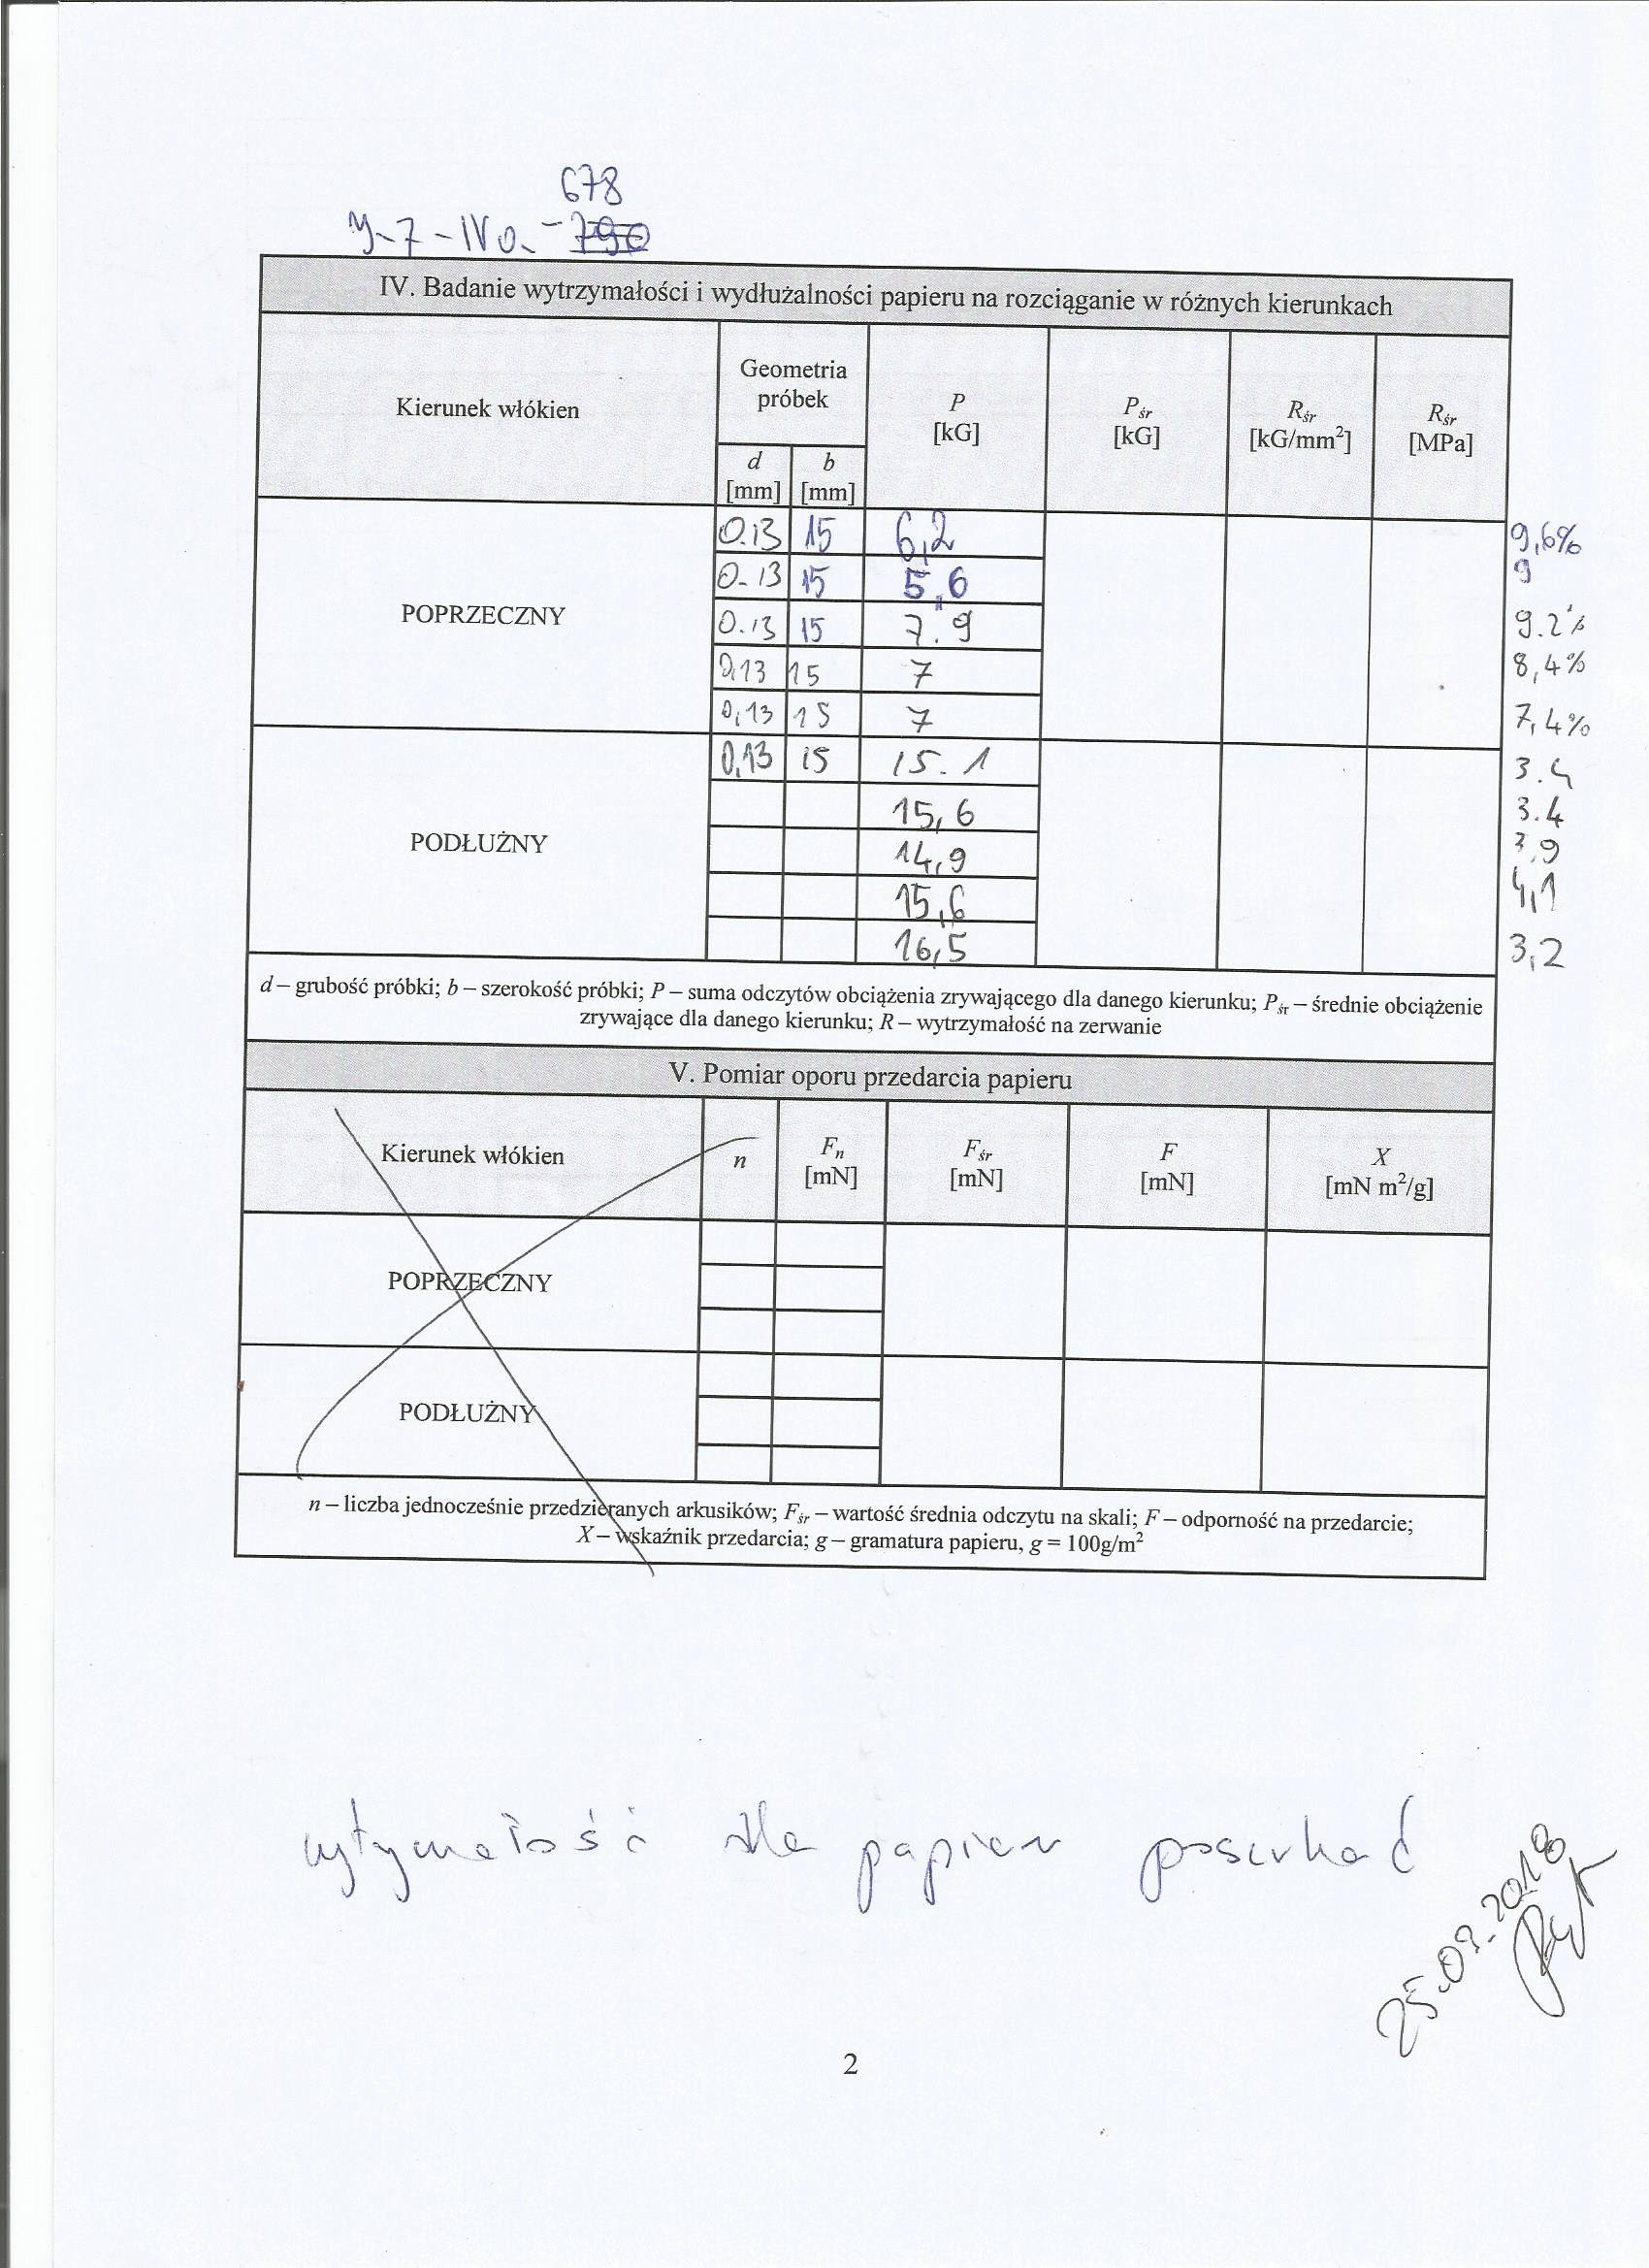 678
y-7-IVa-790
IV. Badanie wytrzymałości i wydłużalności papieru na rozciąganie w różnych kierunkach
Kierunek włókien
Geometria próbek
d [mm]
b [mm]
P [kG]
Pśr [kG]
Rśr [kG/mm²]
Rśr [MPa]
POPRZECZNY
0.13 15 6,2 9,6%
0.13 15 5,6 9
0.13 15 7.9 9.2%
0,13 15 7 8,4%
0,13 15 7 7,4%
PODŁUŻNY
0,13 15 15.1 3.4
15,6 3.4
14,9 3,9
15,6 4,1
16,5 3,2
d – grubość próbki; b – szerokość próbki; P – suma odczytów obciążenia zrywającego dla danego kierunku; Pśr – średnie obciążenie
zrywające dla danego kierunku; R – wytrzymałość na zerwanie
V. Pomiar oporu przedarcia papieru
Kierunek włókien
n
Fn [mN]
Fśr [mN]
F [mN]
X [mN m²/g]
POPRZECZNY
PODŁUŻNY
n – liczba jednocześnie przedzieranych arkusików; Fśr – wartość średnia odczytu na skali; F – odporność na przedarcie;
X – wskaźnik przedarcia; g – gramatura papieru, g = 100g/m²
dla papieru poszukać
25.03.2018
2